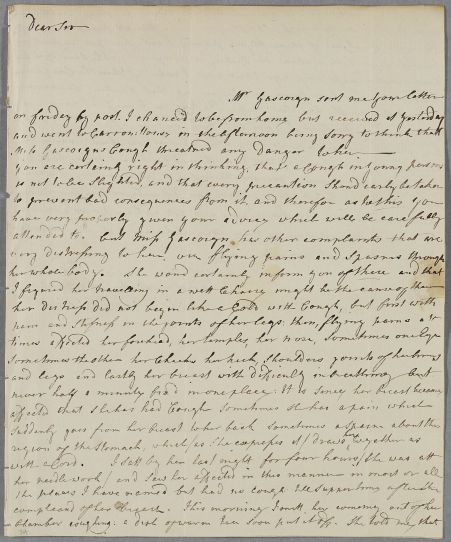 Dear Sir
Mr Gascoign sent me Your letter
on friday by post. I chanced to be from home but received it yesterday
and went to Carron House in the afternoon being sorry to think that
Miss Gascoigns Cough threatned any Danger to her
You are certainly right in thinking, that a Cough in Young persons
is not to be Slighted, and that every precaution should early be taken
to prevent bad consequences from it and therefor as to this You
have very properly given your advice which will be carefully
attended to. but Miss Gascoign has other complaints that are
very distressing to her, flying pains and Spasms through
her whole body. She would certainly inform you of these and that
I figured her travelling in a wett Chaise might be the cause of them
her distress did not begin like a Cold with Cough, but first with
pain and Stifness in the joints of her legs: then, flying pains at
times affected her forehead, her temples, her nose, Sometimes one Eye
Sometimes the other her Cheeks her neck, Shoulders joints of her arms
and legs and lastly her breast with difficulty in breathing but
never half a minute fix'd in one place: It is since her breast became
affected that She has had Cough Sometimes She has a pain which
Suddenly goes from her breast to her back Sometimes a pain about the
region of the Stomach, which, as She expresses it/ draws together as
with a Cord. I sat by her last night for four hours/ She was att
her needle work/ and saw her affected in this manner in most or all
the places I have named but had no cough till Supper time after She
complained of her Breast. This morning I mett her coming out of her
Chamber coughing: a dish of warm Tea soon put it off. She told me that